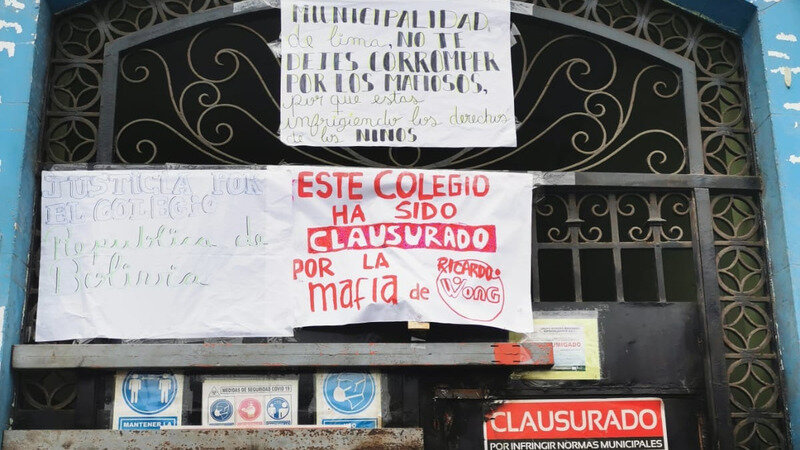 MUNICIPALIDAD
de lima, NO TE
DEJES CORROMPER
POR LOS MAFIOSOS,
porque estas
infrigiendo los derechos
de los NIÑOS
JUSTICIA POR
EL COLEGIO
Republica de
Bolivia
ESTE COLEGIO
HA SIDO
CLAUSURADO
POR LA
mafia de RICARDO
WONG
MEDIDAS DE SEGURIDAD COVID 19
MANTENER LA
CLAUSURADO
POR INFRINGIR NORMAS MUNICIPALES